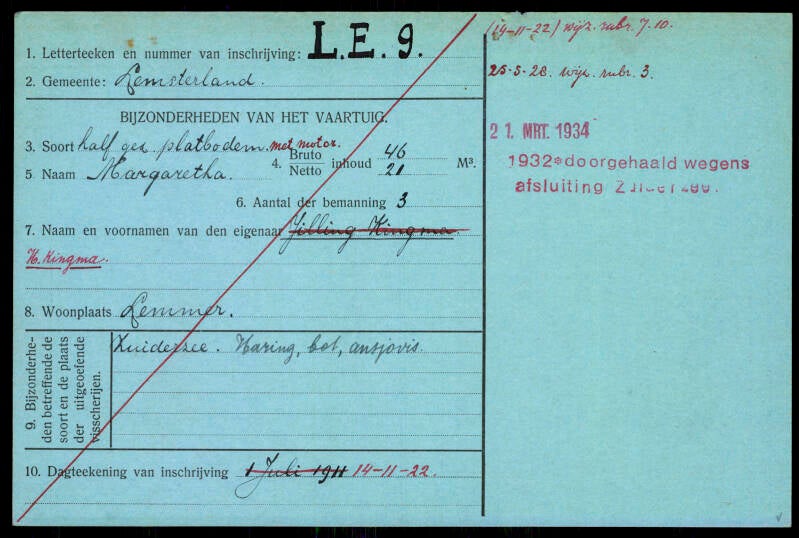 1. Letterteeken en nummer van inschrijving: L.E. 9.
2. Gemeente: Lemsterland.
BIJZONDERHEDEN VAN HET VAARTUIG.
3. Soort half gex platbodem. met motor.
4. Bruto Netto inhoud 46 21 M³.
5 Naam Margaretha.
6. Aantal der bemanning 3
7. Naam en voornamen van den eigenaar Jilling Kingma
H. Kingma.
8. Woonplaats Lemmer.
9. Bijzonderhe-
den betreffende de
soort en de plaats
der uitgeoefende
visscherijen.
Zuiderzee. Haring, bot, ansjovis.
10. Dagteekening van inschrijving 1 Juli 1911 14-11-22.
(14-11-22) wijz. rubr. 7. 10.
25-5-28. wijz. rubr. 3.
21. MRT. 1934
1932 doorgehaald wegens
afsluiting